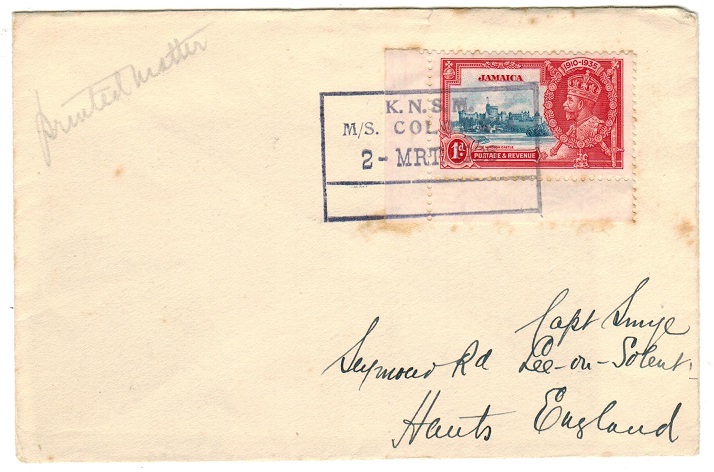 printed matter
K.N.S.M.
M/S. COL
2 - MRT
JAMAICA
1910-1935
WINDSOR CASTLE
1d
POSTAGE & REVENUE
Capt Smye
Seymour Rd Lee-on-Solent.
Hants England